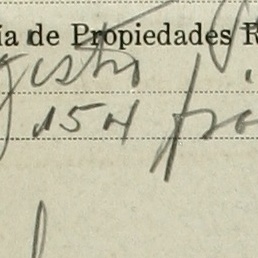 ía de Propiedades R
gistro
154 fro